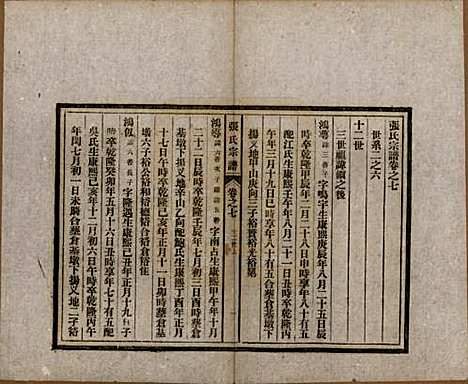 張氏宗譜卷之七
世系二之六
十二世
三世顯諱領之後
鴻 子字鳴宇生康熙庚辰年八月二十五日戌
時卒乾隆甲辰年二月二十八日申時享年八十有五
配江氏生康熙壬午年八月二十一日丑時卒乾隆丙
午年三月十九日巳時享年八十有五合葬倉基墩下
揚叉地甲山庚向三子裕賢裕光裕第
張氏宗譜 卷之七
鴻 字南占生康熙甲午年十月
二十二日辰時卒乾隆壬辰年七月初三日酉時葬倉
基墩下揚叉地辛山乙向配鮑氏生康熙丁酉年正月
十七日時卒乾隆己亥年正月十一日卯時葬倉基
墩六子裕公裕和裕德裕裔裕倉裕佳
鴻似 長子字隆遇生康熙己丑年正月十九日子
時卒乾隆癸卯年五月十六日丑時享年七十有五配
吳氏生康熙己亥年十二月初六日午時卒乾隆丙午
年閏七月初一日未時合葬倉基墩下揚叉地二子裕